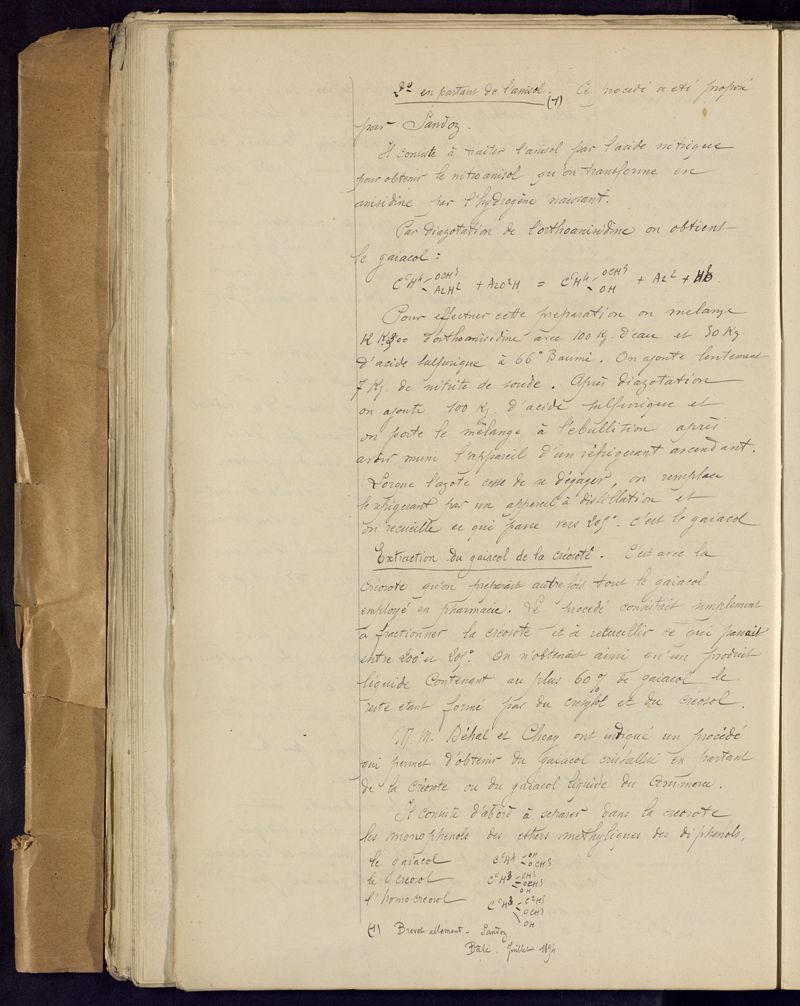 2º en partant de l'anisol. (1) Ce procédé a été proposé
par Sandoz.
Il consiste à traiter l'anisol par l'acide nitrique
pour obtenir le nitroanisol qu'on transforme en
anisidine par l'hydrogène naissant.
Par diazotation de l'orthoanisidine on obtient
le gaïacol :
C⁶H⁴ OCH³ AzH² + AzO²H = C⁶H⁴ OCH³ OH + Az² + H²O.
Pour effectuer cette préparation on mélange
12 Kg 300 d'orthoanisidine avec 100 Kg. d'eau et 30 Kg
d'acide sulfurique à 66° Baumé. On ajoute lentement
7 Kg. de nitrite de soude. Après diazotation
on ajoute 100 Kg. d'acide sulfurique et
on porte le mélange à l'ébullition après
avoir muni l'appareil d'un réfrigérant ascendant.
Lorque l'azote cesse de se dégager, on remplace
le réfrigerant par un appareil à distillation et
on recueille ce qui passe vers 205°. C'est le gaïacol
Extraction du gaïacol de la créosote. C'est avec la
créosote qu'on préparait autrefois tout le gaïacol
employé en pharmacie. Le procédé consistait simplement
à fractionner la créosote et à recueillir ce qui passait
entre 200° et 205°. On n'obtenait ainsi qu'un produit
liquide contenant au plus 60 % de gaïacol le
reste étant formé par du crésylol et du créosol.
M. M. Béhal et Choay ont indiqué un procédé
qui permet d'obtenir du gaïacol cristallisé en partant
de la créosote ou du gaïacol liquide du commerce.
Il consiste d'abord à séparer dans la créosote
les monophénols des éthers méthyliques des diphénols,
le gaïacol C⁶H⁴ OH OCH³
le créosol C⁶H³ CH³ OCH³ OH
l'homocréosol C⁶H³ C²H⁵ OCH³ OH
(1) Brevet allemant - Sandoz
Bâle. Juillet 1894